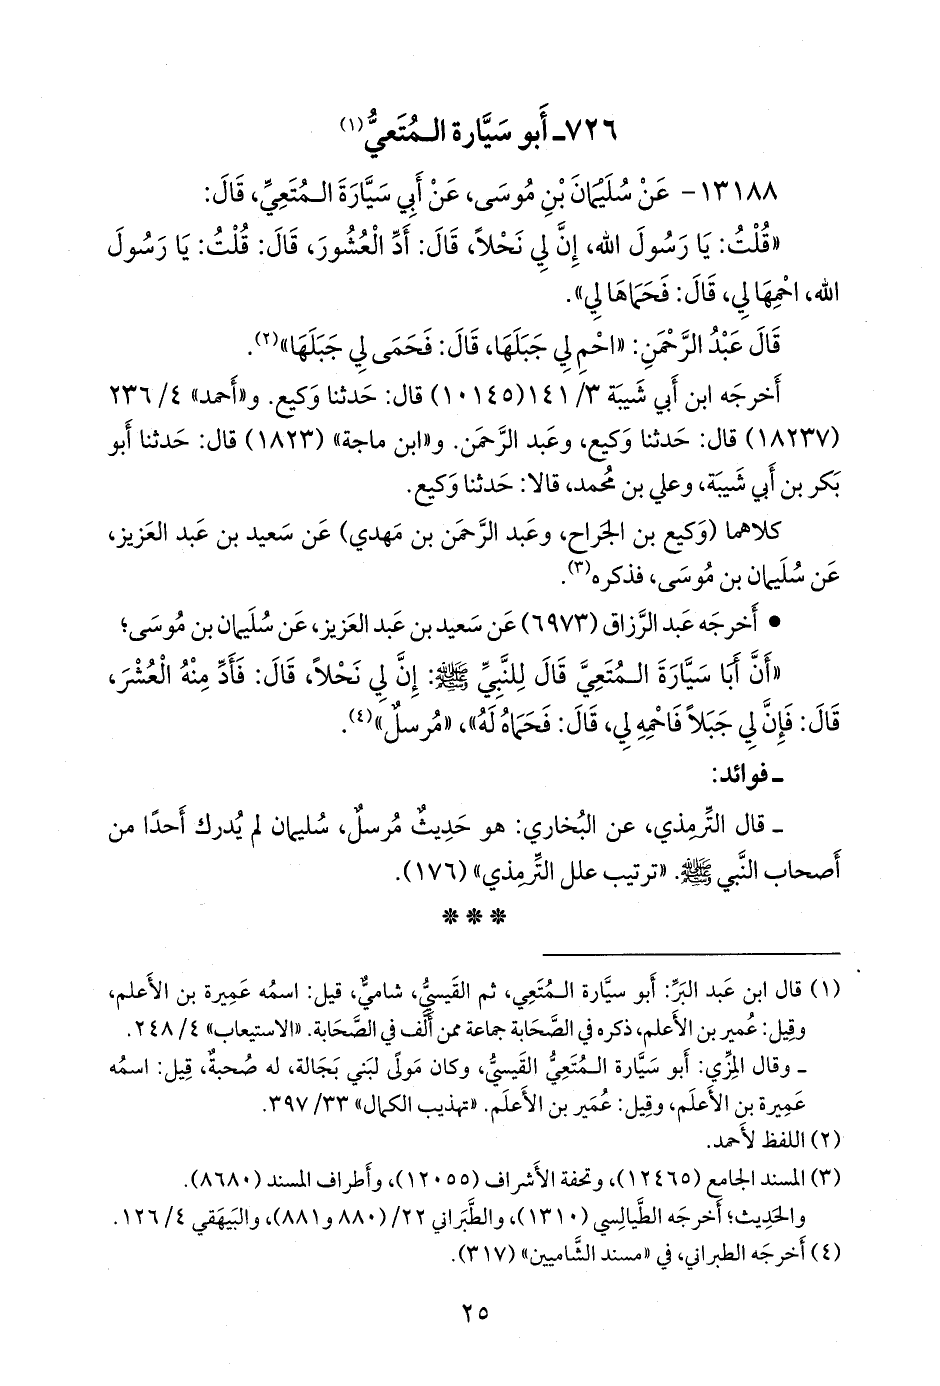 ٧٢٦ـ أَبو سَيَّارة المُتَعيُّ(١)
١٣١٨٨ - عَنْ سُلَيْمَانَ بْنِ مُوسَى، عَنْ أَبِي سَيَّارَةَ المُتَعِيِّ، قَالَ:
«قُلْتُ: يَا رَسُولَ الله، إِنَّ لِي نَحْلاً، قَالَ: أَدِّ الْعُشُورَ، قَالَ: قُلْتُ: يَا رَسُولَ
الله، احْمِهَا لِي، قَالَ: فَحَمَاهَا لِي».
قَالَ عَبْدُ الرَّحْمَنِ: «احْمِ لِي جَبَلَهَا، قَالَ: فَحَمَى لِي جَبَلَهَا»(٢).
أَخرجَه ابن أَبي شَيبَة ٣/ ١٤١(١٠١٤٥) قال: حَدثنا وَكيع. و«أَحمد» ٤/ ٢٣٦
(١٨٢٣٧) قال: حَدثنا وَكيع، وعَبد الرَّحمَن. و«ابن ماجة» (١٨٢٣) قال: حَدثنا أَبو
بَكر بن أَبي شَيبَة، وعلي بن مُحمد، قالا: حَدثنا وَكيع.
كلاهما (وَكيع بن الجَراح، وعَبد الرَّحمَن بن مَهدي) عَن سَعيد بن عَبد العَزيز،
عَن سُلَيمان بن مُوسَى، فذكره(٣).
• أَخرجَه عَبد الرَّزاق (٦٩٧٣) عَن سَعيد بن عَبد العَزيز، عَن سُلَيمان بن مُوسَى؛
«أَنَّ أَبَا سَيَّارَةَ المُتَعِيَّ قَالَ لِلنَّبِيِّ ﷺ: إِنَّ لِي نَحْلاً، قَالَ: فَأَدِّ مِنْهُ الْعُشْرَ،
قَالَ: فَإِنَّ لِي جَبَلاً فَاحْمِهِ لِي، قَالَ: فَحَمَاهُ لَهُ»، «مُرسلٌ»(٤).
ـ فوائد:
ـ قال التِّرمِذي، عن البُخاري: هو حَدِيثٌ مُرسلٌ، سُليمان لم يُدرك أَحدًا من
أَصحاب النَّبي ﷺ. «ترتيب علل التِّرمِذي» (١٧٦).
* * *
(١) قال ابن عَبد البَرِّ: أَبو سيَّارة المُتَعِي، ثم القَيسيُّ، شاميٌّ، قيل: اسمُه عَمِيرة بن الأَعلم،
وقِيل: عُمير بن الأَعلم، ذكره في الصَّحابة جماعة ممن أَلَّف في الصَّحابة. «الاستيعاب» ٤/ ٢٤٨.
ـ وقال المِزِّي: أَبو سَيَّارة المُتَعِيُّ القَيسيُّ، وكان مَولًى لبَني بَجَالة، له صُحبةٌ، قِيل: اسمُه
عَمِيرة بن الأَعلَم، وقِيل: عُمَير بن الأَعلَم. «تهذيب الكمال» ٣٣/ ٣٩٧.
(٢) اللفظ لأَحمد.
(٣) المسند الجامع (١٢٤٦٥)، وتحفة الأَشراف (١٢٠٥٥)، وأَطراف المسند (٨٦٨٠).
والحَدِيث؛ أَخرجَه الطَّيالسي (١٣١٠)، والطَّبَراني ٢٢/ (٨٨٠ و٨٨١)، والبَيهَقي ٤/ ١٢٦.
(٤) أَخرجَه الطبراني، في «مسند الشَّاميين» (٣١٧).
٢٥